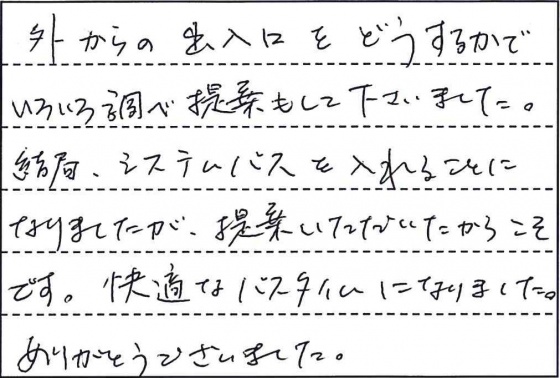 外からの出入口をどうするかで
いろいろ調べ提案もして下さいました。
結局、システムバスを入れることに
なりましたが、提案いただいたからこそ
です。快適なバスタイムになりました。
ありがとうございました。